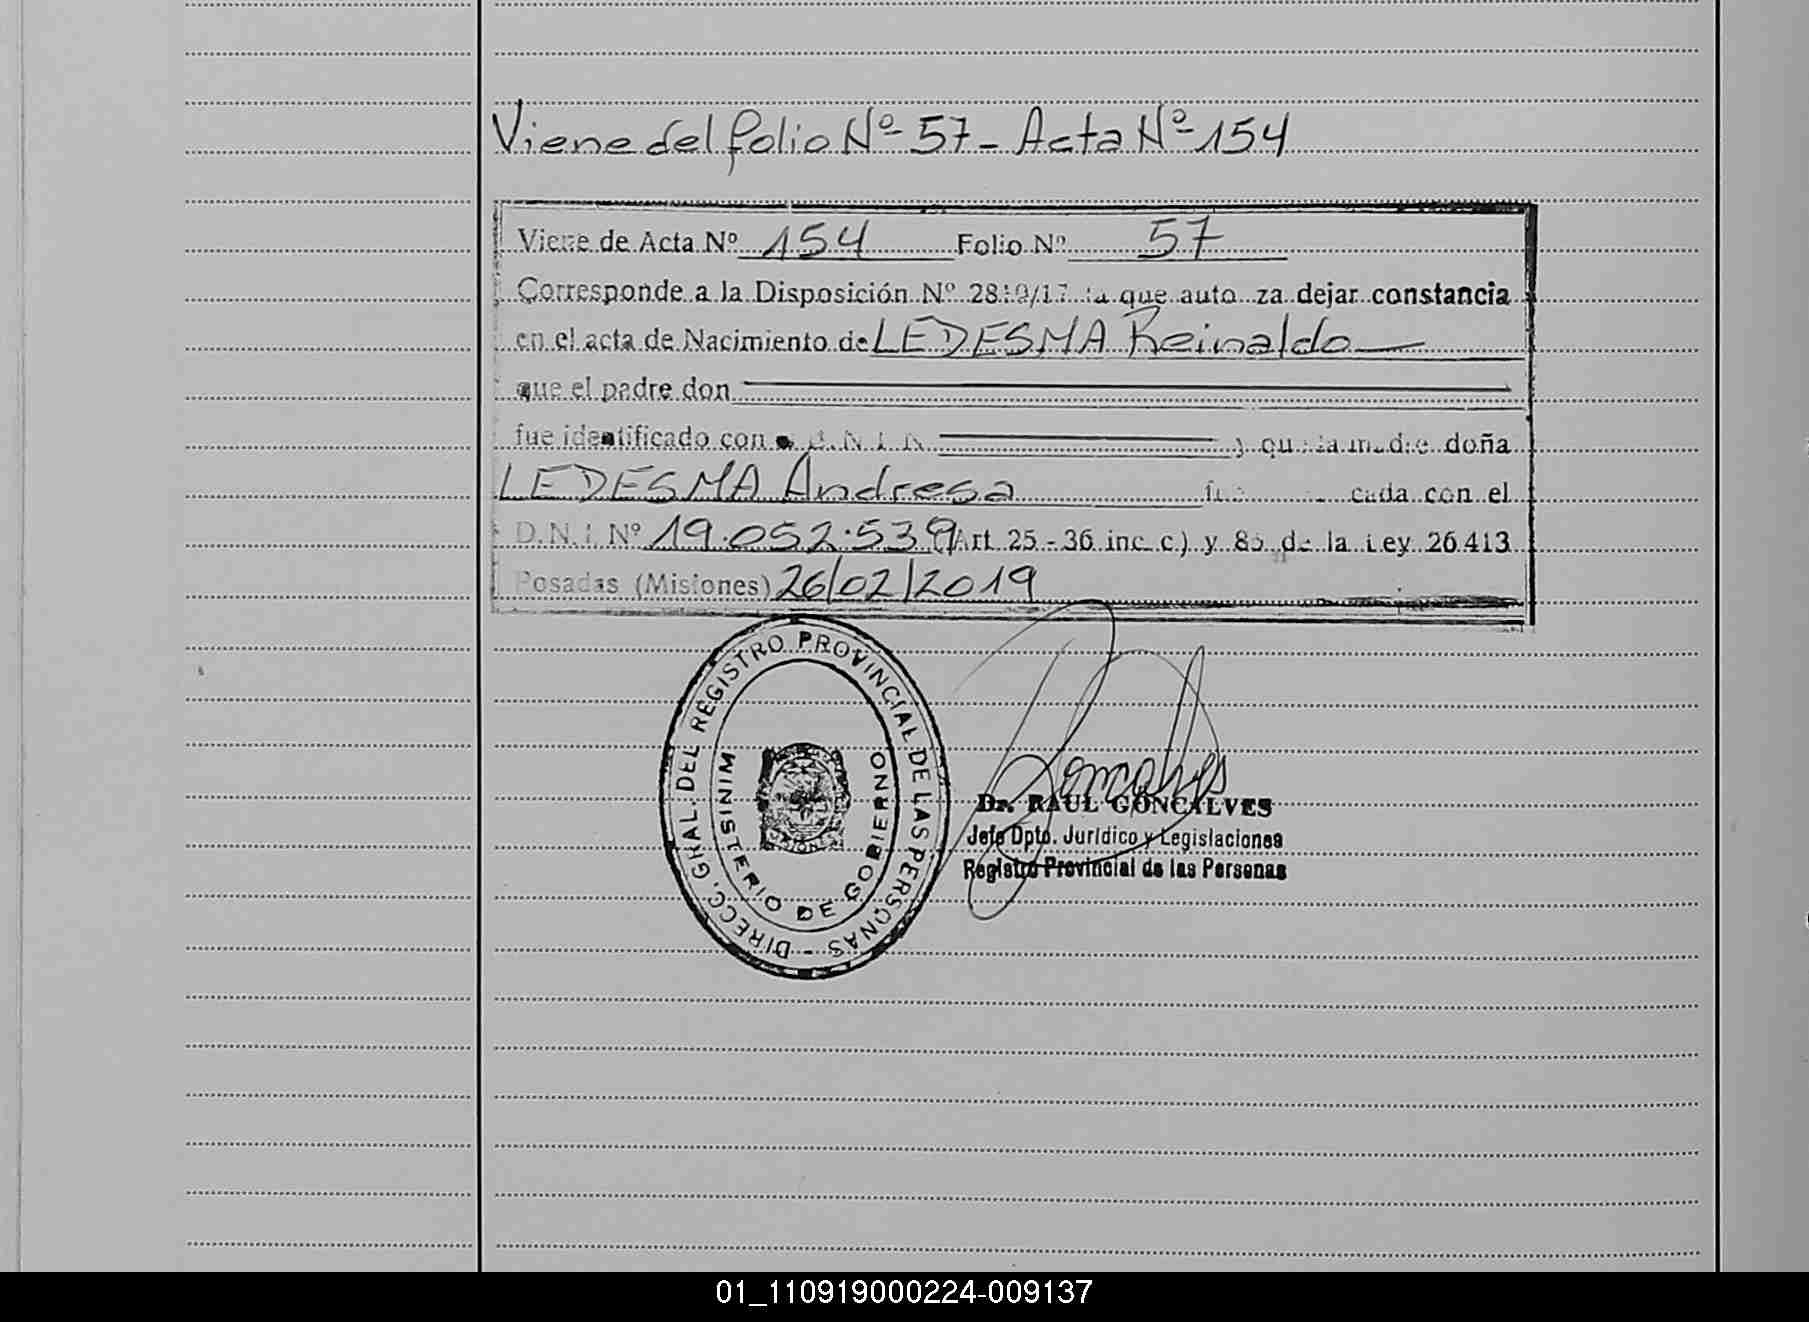 Viene del folio Nº 57 - Acta Nº 154
Viene de Acta Nº 154 Folio Nº 57
Corresponde a la Disposición Nº /17 la que autoriza dejar constancia
en el acta de Nacimiento de LEDESMA Reinaldo
que el padre don
fue identificado con D.N.I. N y que la madre doña
LEDESMA Andresa cada con el
D.N.I. Nº 19.052.539 (Art. 25 - 36 inc. c) y 85 de la Ley 26413
Posadas (Misiones) 26/02/2019
DIRECC. GRAL. DEL REGISTRO PROVINCIAL DE LAS PERSONAS -
MINISTERIO DE GOBIERNO
Dr. RAUL GONCALVES
Jefe Dpto. Jurídico y Legislaciones
Registro Provincial de las Personas
01_110919000224-009137